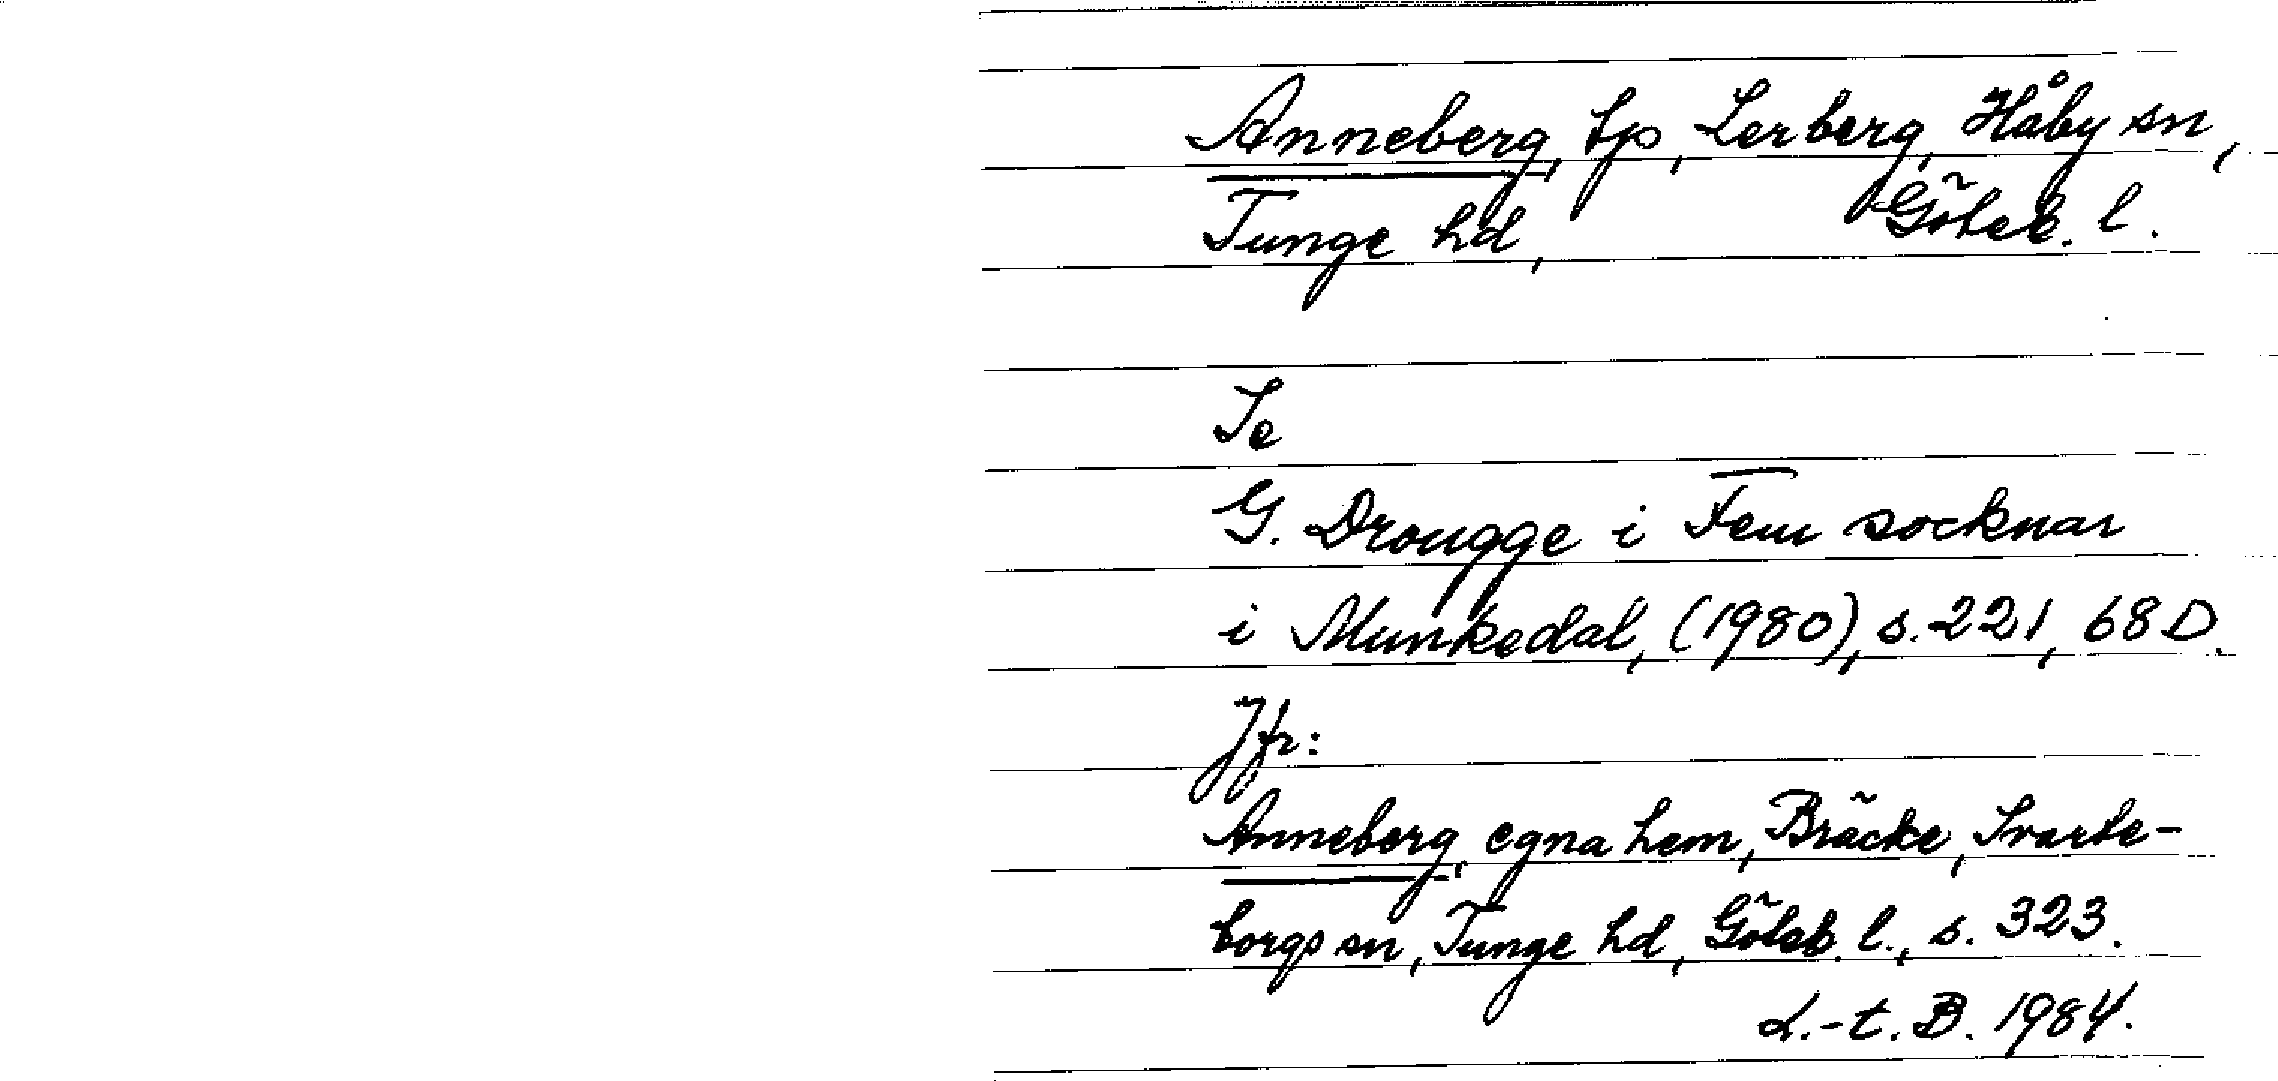 Anneberg, tp, Lerberg, Håby sn,
Tunge hd, Göteb. l.
Se
G. Drougge i Fem socknar
i Munkedal, (1980), s. 221, 68 D.
Jfr:
Anneberg, egna hem, Bräcke, Svarte-
borgs sn, Tunge hd, Göteb. l., s. 323.
L.-t. B. 1984.